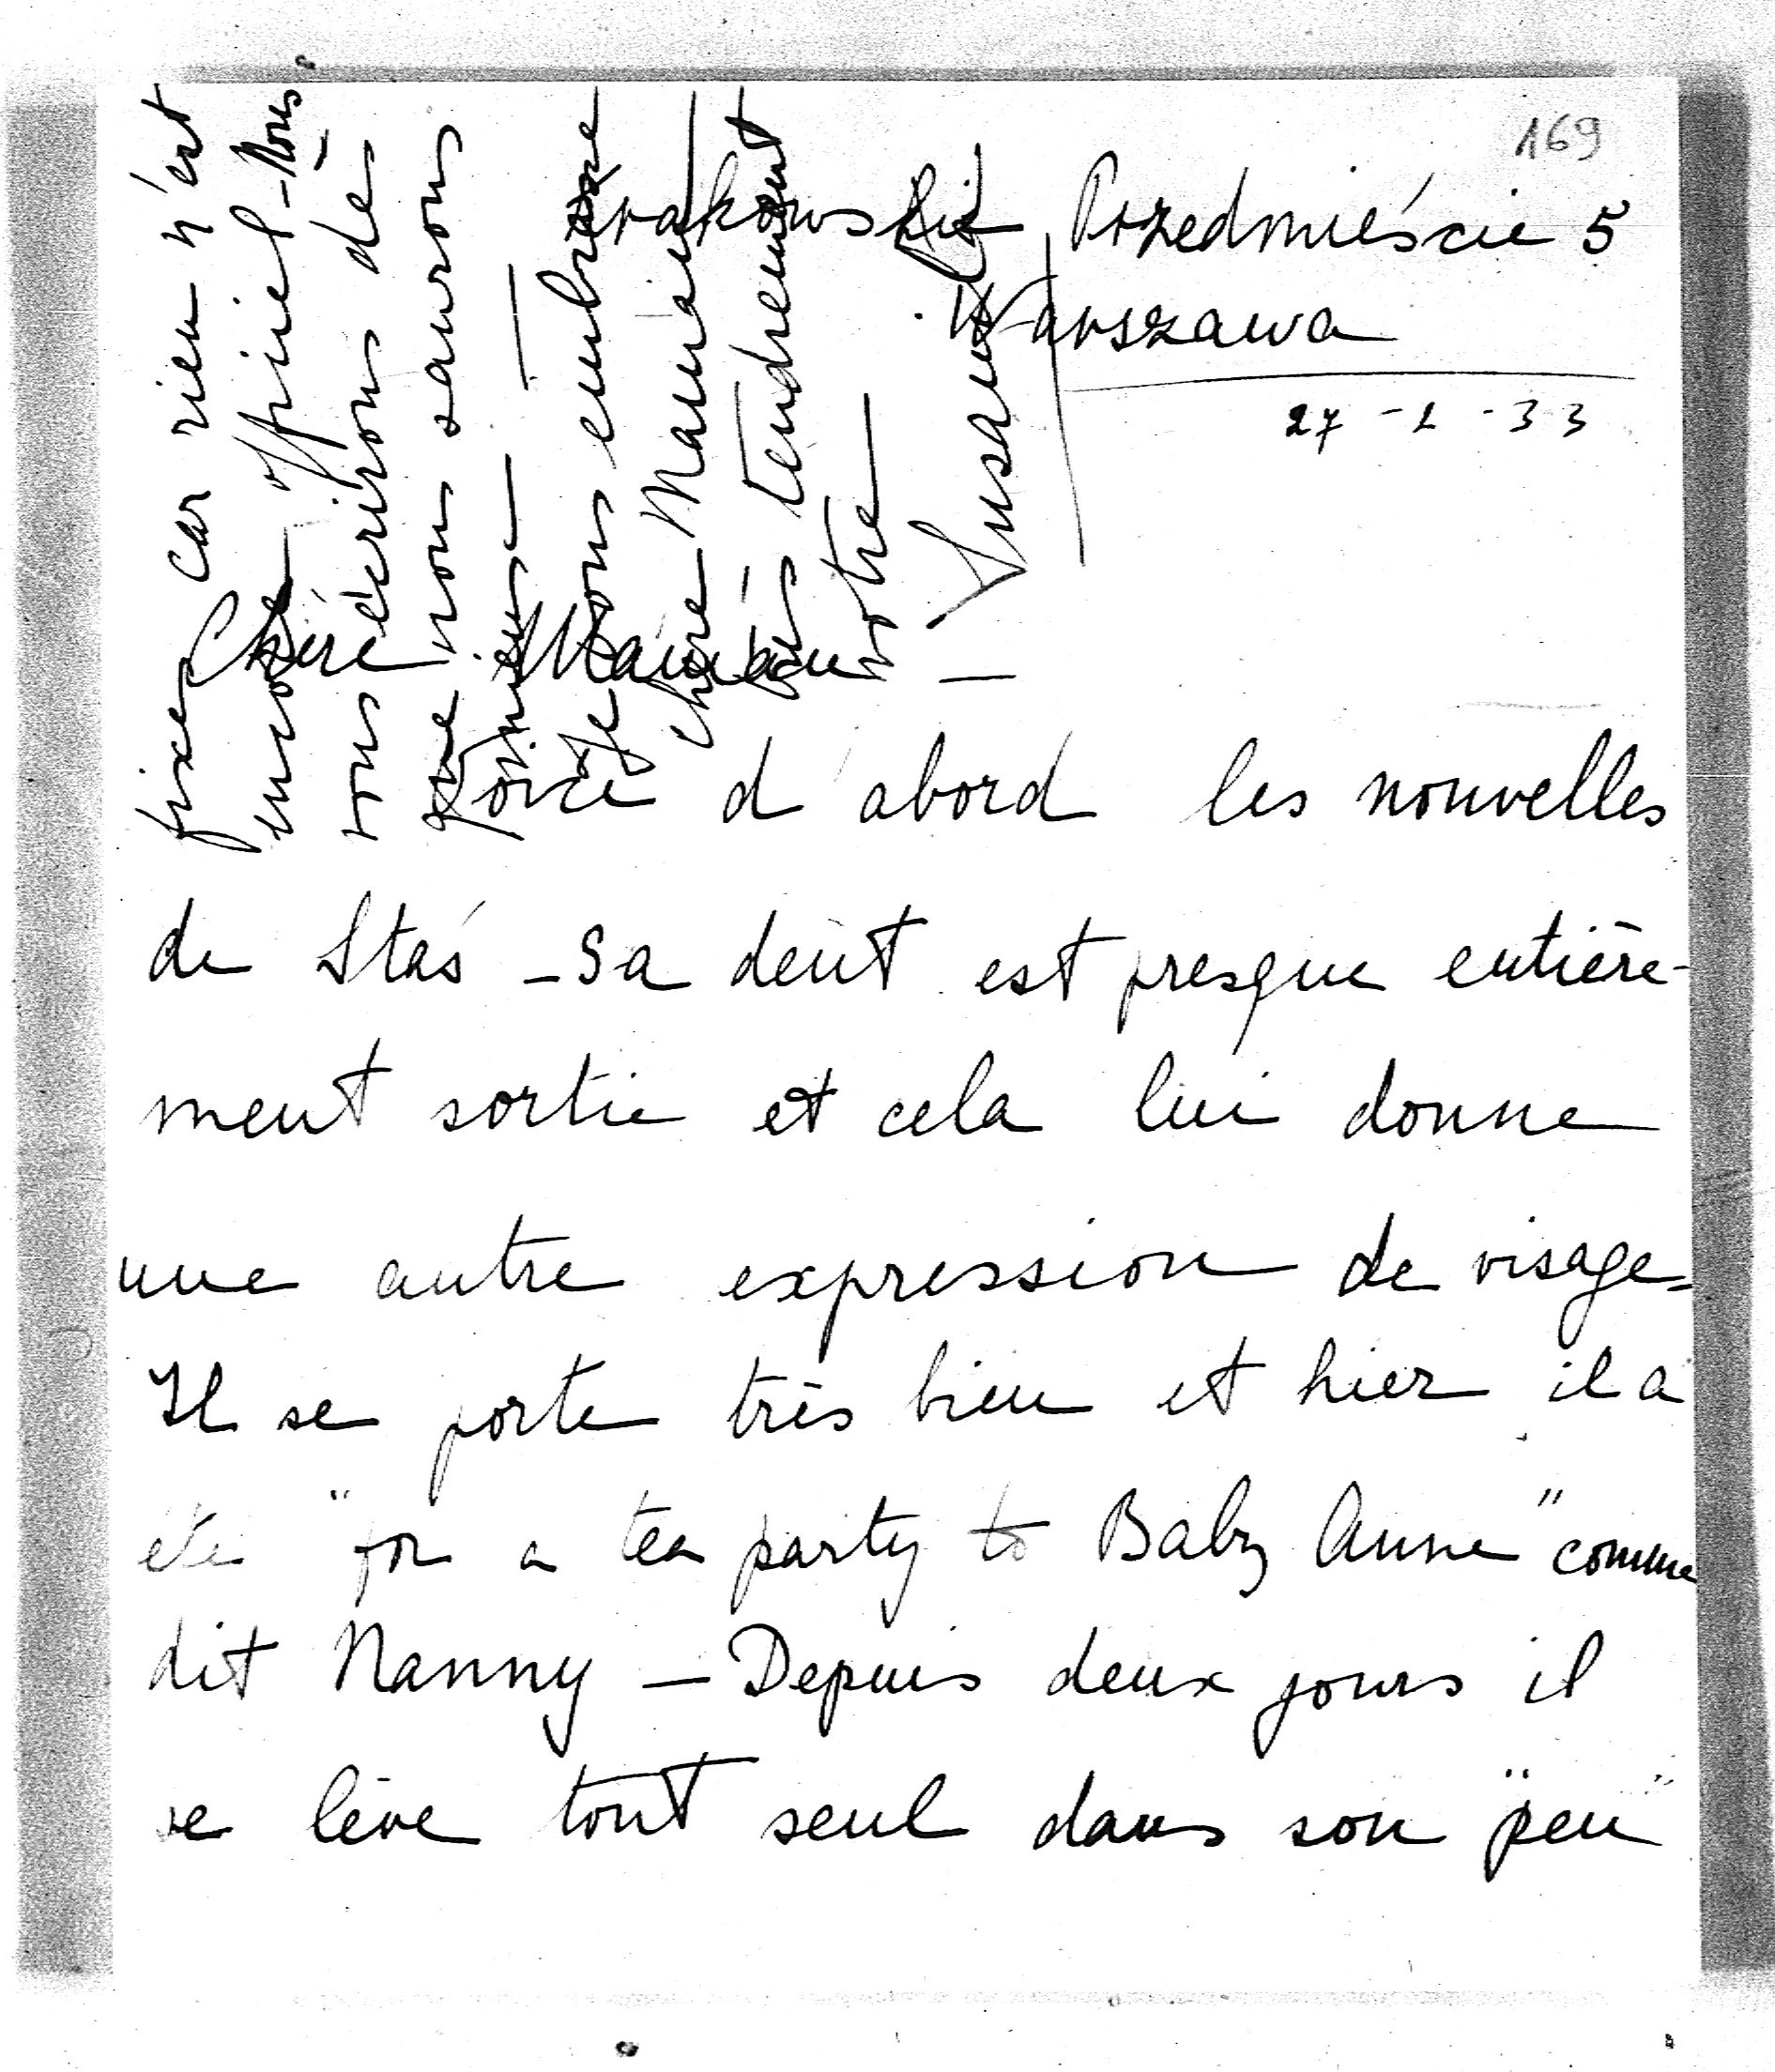 169
Krakowskie Przedmieście 5
Warszawa
27 - 2 - 33
Chère Maman —
Voici d'abord les nouvelles
de Staś - Sa dent est presque entière-
ment sortie et cela lui donne
une autre expression de visage -
Il se porte très bien et hier il a
été "for a tea party to Baby Anne" comme
dit Nanny — Depuis deux jours il
se lève tout seul dans son "pen"
fixer car rien n'est
encore officiel - Nous
vous écrirons dè
que nous saurons
mieux —
Je vous embrasse
chère Maman
très tendrement
votre
Susanne